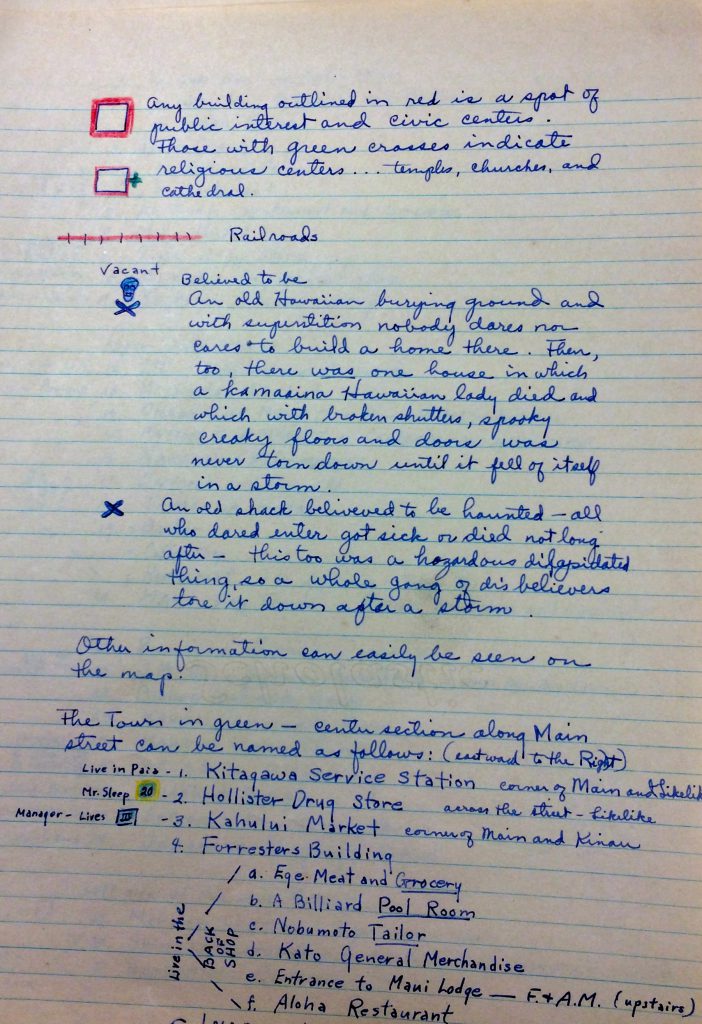 Any building outlined in red is a spot of
public interest and civic centers.
Those with green crosses indicate
religious centers... temples, churches, and
cathedral.
Railroads
Vacant
Believed to be
An old Hawaiian burying ground and
with superstition nobody dares nor
cares to build a home there. Then,
too, there was one house in which
a kamaaina Hawaiian lady died and
which with broken shutters, spooky
creaky floors and doors was
never torn down until it fell of itself
in a storm.
An old shack believeved to be haunted - all
who dared enter got sick or died not long
after - this too was a hazardous dilapidated
thing, so a whole gang of dis believers
tore it down after a storm.
Other information can easily be seen on
the map.
The Town in green - center section along Main
street can be named as follows: (eastward to the Right)
Live in Paia - 1. Kitagawa Service Station corner of Main and Likelik
Mr. Sleep 20 - 2. Hollister Drug Store across the street - Likelike
Manager - Lives III - 3. Kahului Market corner of Main and Kinau
4. Forresters Building
a. Ege Meat and Grocery
b. A Billiard Pool Room
c. Nobumoto Tailor
d. Kato General Merchandise
e. Entrance to Maui Lodge - F. & A.M. (upstairs)
f. Aloha Restaurant
Live in the
BACK
OF
SHOP